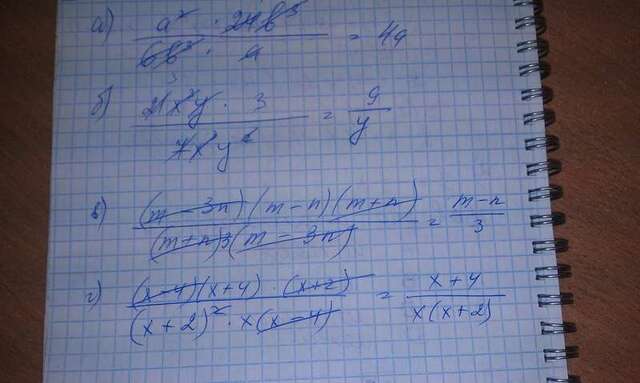 а) a² · 24b³ / 6b² · a = 4a
б) 21x²y · 3 / 7x²y² = 9/y
в) (m - 3n)(m - n)(m + n) / (m + n)3(m - 3n) = m - n / 3
г) (x - 4)(x + 4) · (x + 2) / (x + 2)² · x(x - 4) = x + 4 / x(x + 2)